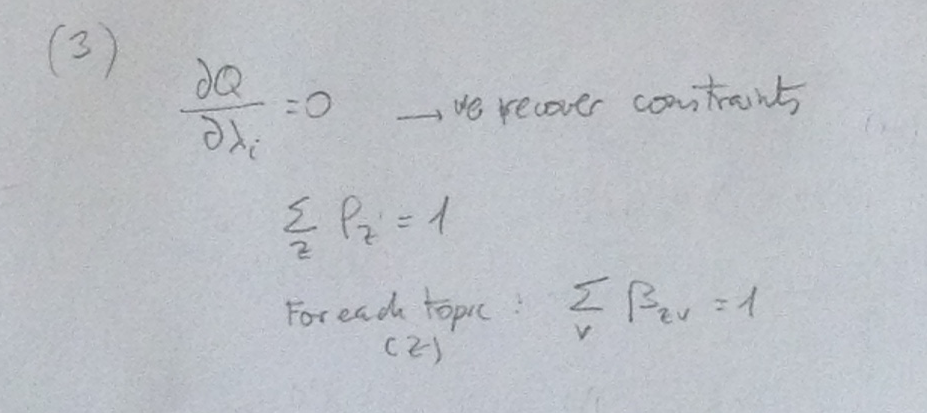 (3)
∂Q/∂λi = 0 → we recover constraints
Σz Pz = 1
For each topic : Σv βzv = 1
(z)